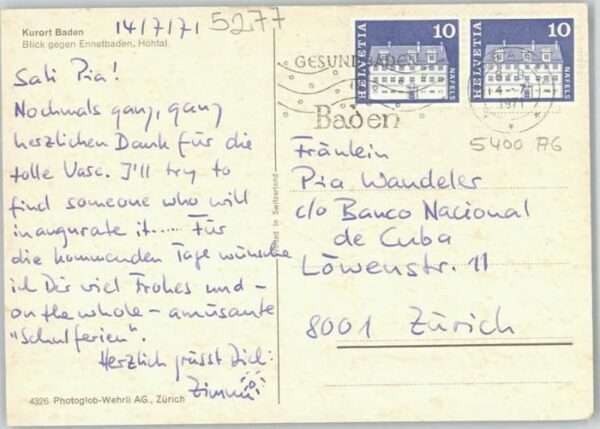 Kurort Baden
Blick gegen Ennetbaden, Höhtal
14/7/71
5277
Sali Pia!
Nochmals ganz, ganz
herzlichen Dank für die
tolle Vase. I'll try to
find someone who will
inaugurate it..... Für
die kommenden Tage wünsche
ich Dir viel Frohes und -
on the whole - amüsante
"Schulferien".
Herzlich grüsst Dich:
4326 Photoglob-Wehrli AG., Zürich
Printed in Switzerland
HELVETIA 10 NÄFELS
HELVETIA 10 NÄFELS
GESUND BADEN
Baden
1971
5400 AG
Fräulein
Pia Wandeler
c/o Banco Nacional
de Cuba
Löwenstr. 11
8001 Zürich